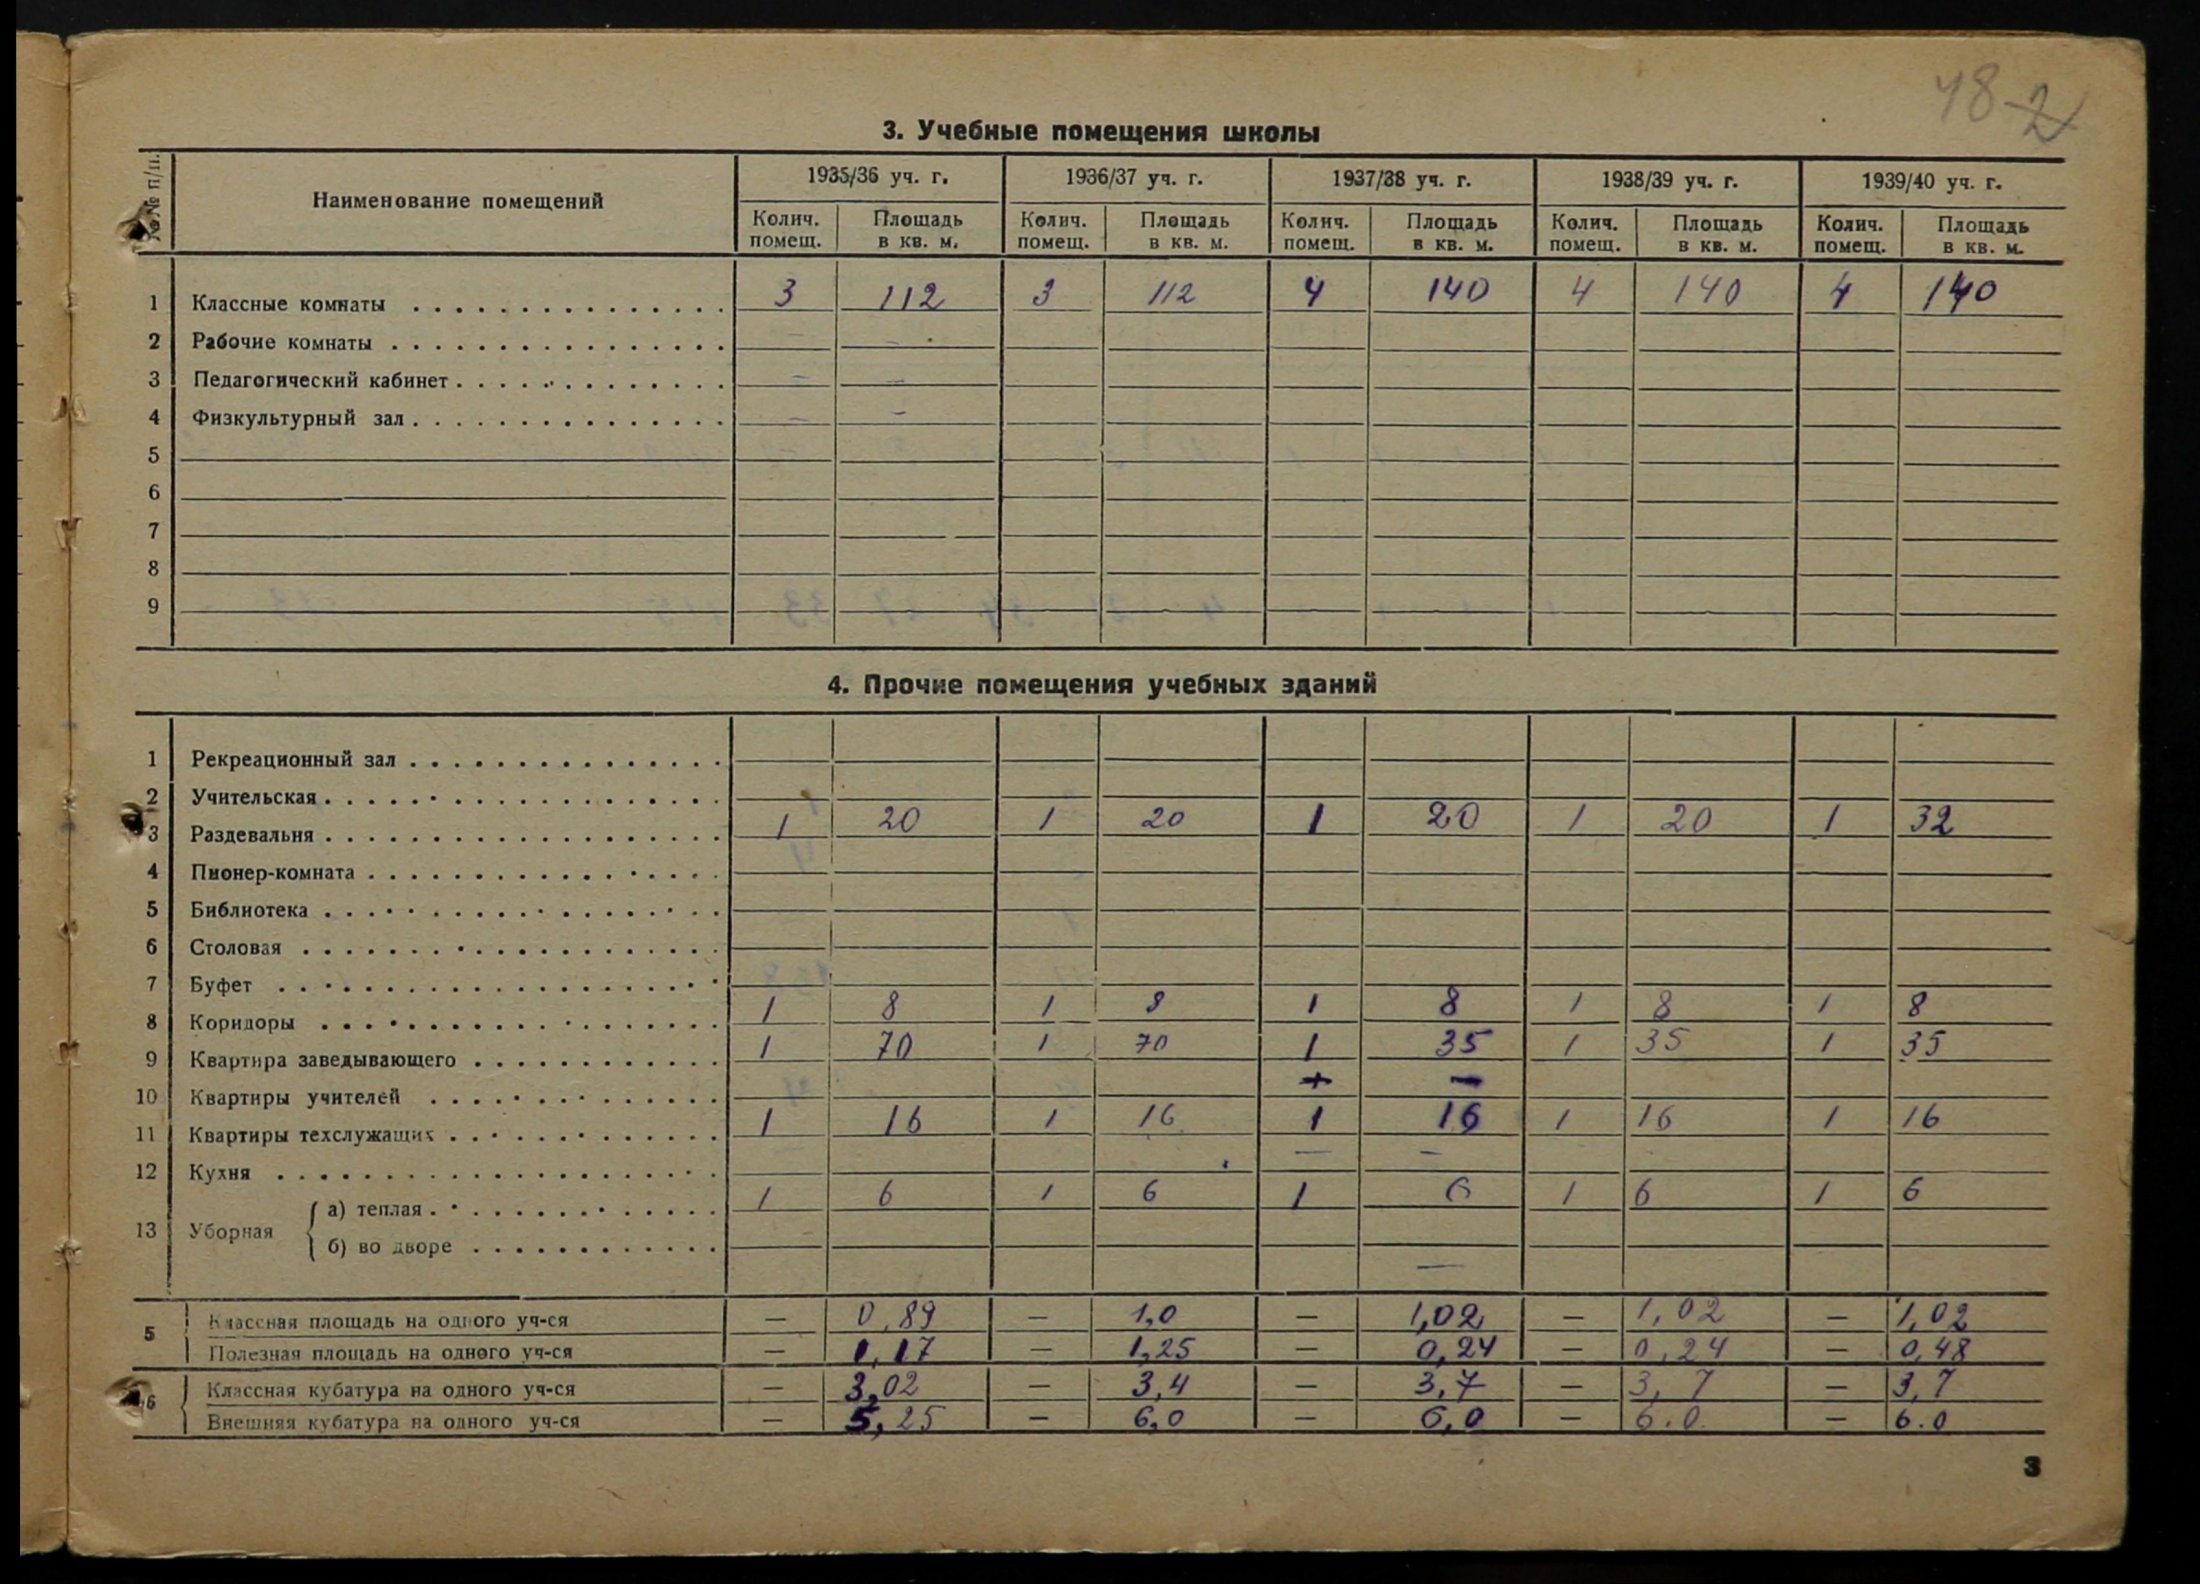 48 2
3. Учебные помещения школы
№№ п/п. Наименование помещений 1935/36 уч. г. 1936/37 уч. г. 1937/38 уч. г. 1938/39 уч. г. 1939/40 уч. г.
Колич. помещ. Площадь в кв. м. Колич. помещ. Площадь в кв. м. Колич. помещ. Площадь в кв. м. Колич. помещ. Площадь в кв. м. Колич. помещ. Площадь в кв. м.
1 Классные комнаты 3 112 3 112 4 140 4 140 4 140
2 Рабочие комнаты – –
3 Педагогический кабинет – –
4 Физкультурный зал – –
5
6
7
8
9
4. Прочие помещения учебных зданий
1 Рекреационный зал
2 Учительская
3 Раздевальня 1 20 1 20 1 20 1 20 1 32
4 Пионер-комната
5 Библиотека
6 Столовая
7 Буфет
8 Коридоры 1 8 1 8 1 8 1 8 1 8
9 Квартира заведывающего 1 70 1 70 1 35 1 35 1 35
10 Квартиры учителей + –
11 Квартиры техслужащих 1 16 1 16 1 16 1 16 1 16
12 Кухня – –
13 Уборная а) теплая 1 6 1 6 1 6 1 6 1 6
б) во дворе
—
5 Классная площадь на одного уч-ся — 0,89 — 1,0 — 1,02 — 1,02 — 1,02
Полезная площадь на одного уч-ся — 1,17 — 1,25 — 0,24 — 0,24 — 0,48
6 Классная кубатура на одного уч-ся — 3,02 — 3,4 — 3,7 — 3,7 — 3,7
Внешняя кубатура на одного уч-ся — 5,25 — 6,0 — 6,0 — 6.0 — 6.0
3